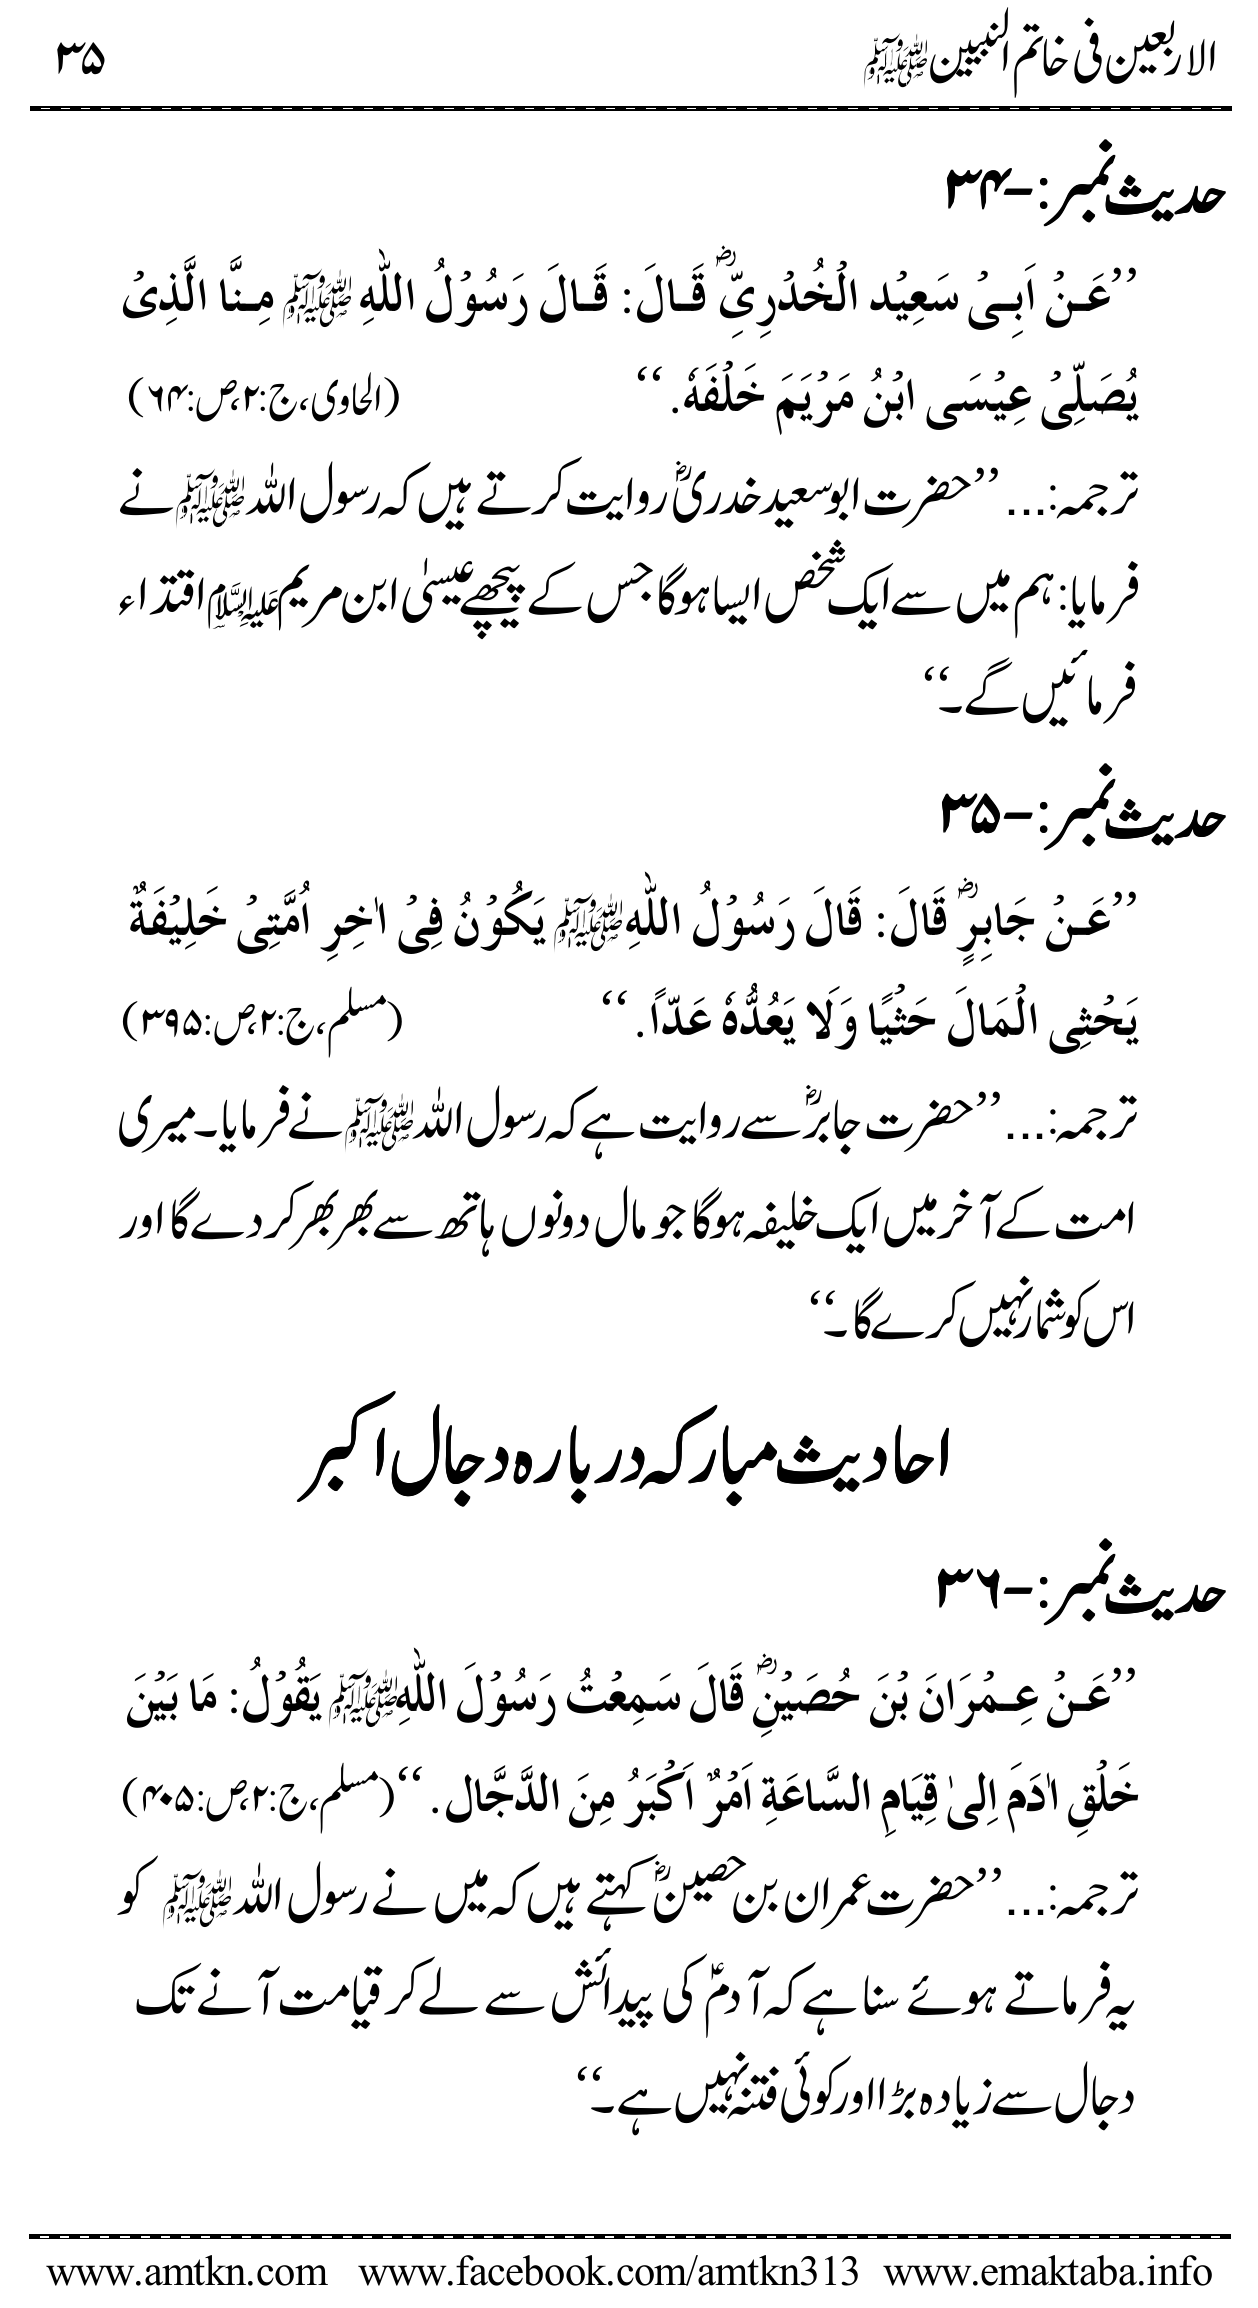 الاربعین فی خاتم النبیین ﷺ ۳۵
حدیث نمبر:-۳۴
’’عَنْ اَبِیْ سَعِیْد الْخُدْرِیِّؓ قَالَ: قَالَ رَسُوْلُ اللّٰهِ ﷺ مِنَّا الَّذِیْ
یُصَلِّیْ عِیْسَی ابْنُ مَرْیَمَ خَلْفَهٗ.‘‘ (الحاوی، ج:۲، ص:۶۴)
ترجمہ:… ’’حضرت ابوسعید خدریؓ روایت کرتے ہیں کہ رسول اللہ ﷺ نے
فرمایا: ہم میں سے ایک شخص ایسا ہوگا جس کے پیچھے عیسیٰ ابن مریم علیہ السلام اقتداء
فرمائیں گے۔‘‘
حدیث نمبر:-۳۵
’’عَنْ جَابِرٍؓ قَالَ: قَالَ رَسُوْلُ اللّٰهِ ﷺ یَکُوْنُ فِیْ اٰخِرِ اُمَّتِیْ خَلِیْفَةٌ
یَحْثِی الْمَالَ حَثْیًا وَلَا یَعُدُّهٗ عَدّاً.‘‘ (مسلم، ج:۲، ص:۳۹۵)
ترجمہ:… ’’حضرت جابرؓ سے روایت ہے کہ رسول اللہ ﷺ نے فرمایا۔ میری
امت کے آخر میں ایک خلیفہ ہوگا جو مال دونوں ہاتھ سے بھر بھر کر دے گا اور
اس کو شمار نہیں کرے گا۔‘‘
احادیث مبارکہ دربارہ دجال اکبر
حدیث نمبر:-۳۶
’’عَنْ عِمْرَانَ بْنَ حُصَیْنٍؓ قَالَ سَمِعْتُ رَسُوْلَ اللّٰهِ ﷺ یَقُوْلُ: مَا بَیْنَ
خَلْقِ اٰدَمَ اِلیٰ قِیَامِ السَّاعَةِ اَمْرٌ اَکْبَرُ مِنَ الدَّجَّال.‘‘ (مسلم، ج:۲، ص:۴۰۵)
ترجمہ:… ’’حضرت عمران بن حصینؓ کہتے ہیں کہ میں نے رسول اللہ ﷺ کو
یہ فرماتے ہوئے سنا ہے کہ آدمؑ کی پیدائش سے لے کر قیامت آنے تک
دجال سے زیادہ بڑا اور کوئی فتنہ نہیں ہے۔‘‘
www.amtkn.com www.facebook.com/amtkn313 www.emaktaba.info